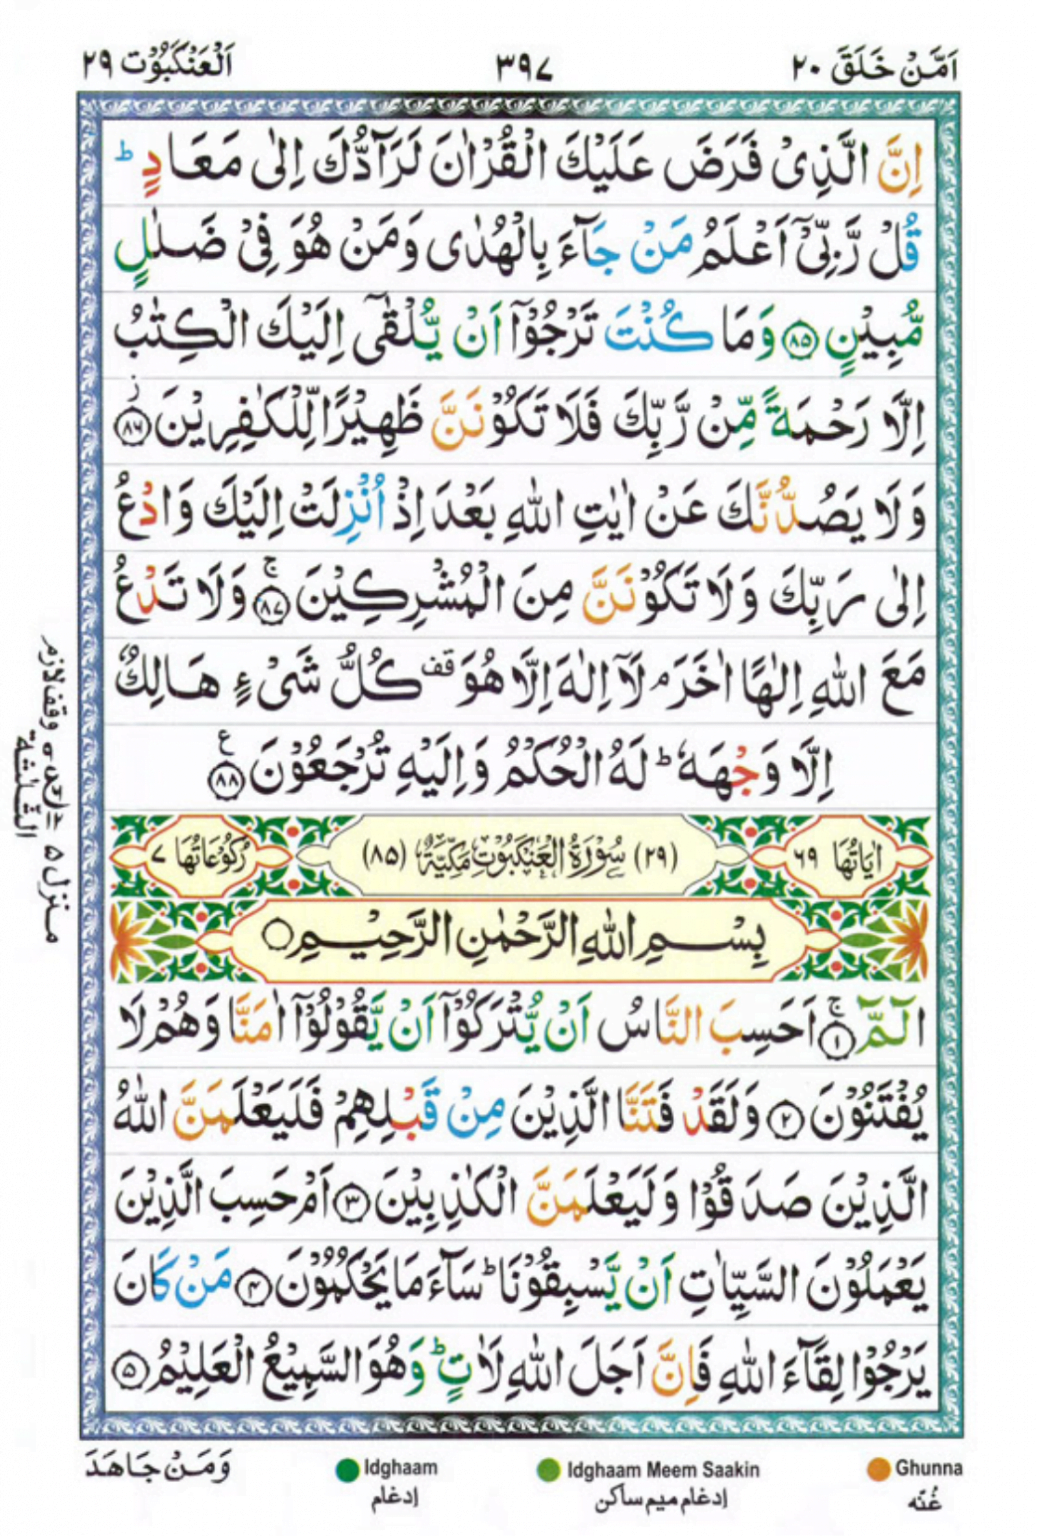 اَمَّنْ خَلَقَ ٢٠ ٣٩٧ اَلْعَنْكَبُوْت ٢٩
اِنَّ الَّذِىْ فَرَضَ عَلَيْكَ الْقُرْاٰنَ لَرَآدُّكَ اِلٰى مَعَادٍ ؕ
قُلْ رَّبِّىْٓ اَعْلَمُ مَنْ جَآءَ بِالْهُدٰى وَمَنْ هُوَ فِىْ ضَلٰلٍ
مُّبِيْنٍ ﴿٨٥﴾ وَمَا كُنْتَ تَرْجُوْٓا اَنْ يُّلْقٰٓى اِلَيْكَ الْكِتٰبُ
اِلَّا رَحْمَةً مِّنْ رَّبِّكَ فَلَا تَكُوْنَنَّ ظَهِيْرًا لِّلْكٰفِرِيْنَ ؗ ﴿٨٦﴾
وَلَا يَصُدُّنَّكَ عَنْ اٰيٰتِ اللّٰهِ بَعْدَ اِذْ اُنْزِلَتْ اِلَيْكَ وَادْعُ
اِلٰى رَبِّكَ وَلَا تَكُوْنَنَّ مِنَ الْمُشْرِكِيْنَ ۚ ﴿٨٧﴾ وَلَا تَدْعُ
مَعَ اللّٰهِ اِلٰهًا اٰخَرَ ۘ لَآ اِلٰهَ اِلَّا هُوَ قف كُلُّ شَىْءٍ هَالِكٌ
اِلَّا وَجْهَهٗ ؕ لَهُ الْحُكْمُ وَاِلَيْهِ تُرْجَعُوْنَ ﴿٨٨﴾ ع
اٰيَاتُهَا ٦٩ (٢٩) سُوْرَةُ الْعَنْكَبُوْتِ مَكِّيَّةٌ (٨٥) رُكُوْعَاتُهَا ٧
بِسْمِ اللّٰهِ الرَّحْمٰنِ الرَّحِيْمِ
الٓمّٓ ۚ ﴿١﴾ اَحَسِبَ النَّاسُ اَنْ يُّتْرَكُوْٓا اَنْ يَّقُوْلُوْٓا اٰمَنَّا وَهُمْ لَا
يُفْتَنُوْنَ ﴿٢﴾ وَلَقَدْ فَتَنَّا الَّذِيْنَ مِنْ قَبْلِهِمْ فَلَيَعْلَمَنَّ اللّٰهُ
الَّذِيْنَ صَدَقُوْا وَلَيَعْلَمَنَّ الْكٰذِبِيْنَ ﴿٣﴾ اَمْ حَسِبَ الَّذِيْنَ
يَعْمَلُوْنَ السَّيِّاٰتِ اَنْ يَّسْبِقُوْنَا ؕ سَآءَ مَا يَحْكُمُوْنَ ﴿٤﴾ مَنْ كَانَ
يَرْجُوْا لِقَآءَ اللّٰهِ فَاِنَّ اَجَلَ اللّٰهِ لَاٰتٍ ؕ وَهُوَ السَّمِيْعُ الْعَلِيْمُ ﴿٥﴾
منزل ٥
وقف لازم
الثلٰثة
وَمَنْ جَاهَدَ
Idghaam Idghaam Meem Saakin Ghunna
إدغام إدغام ميم ساكن غُنّه